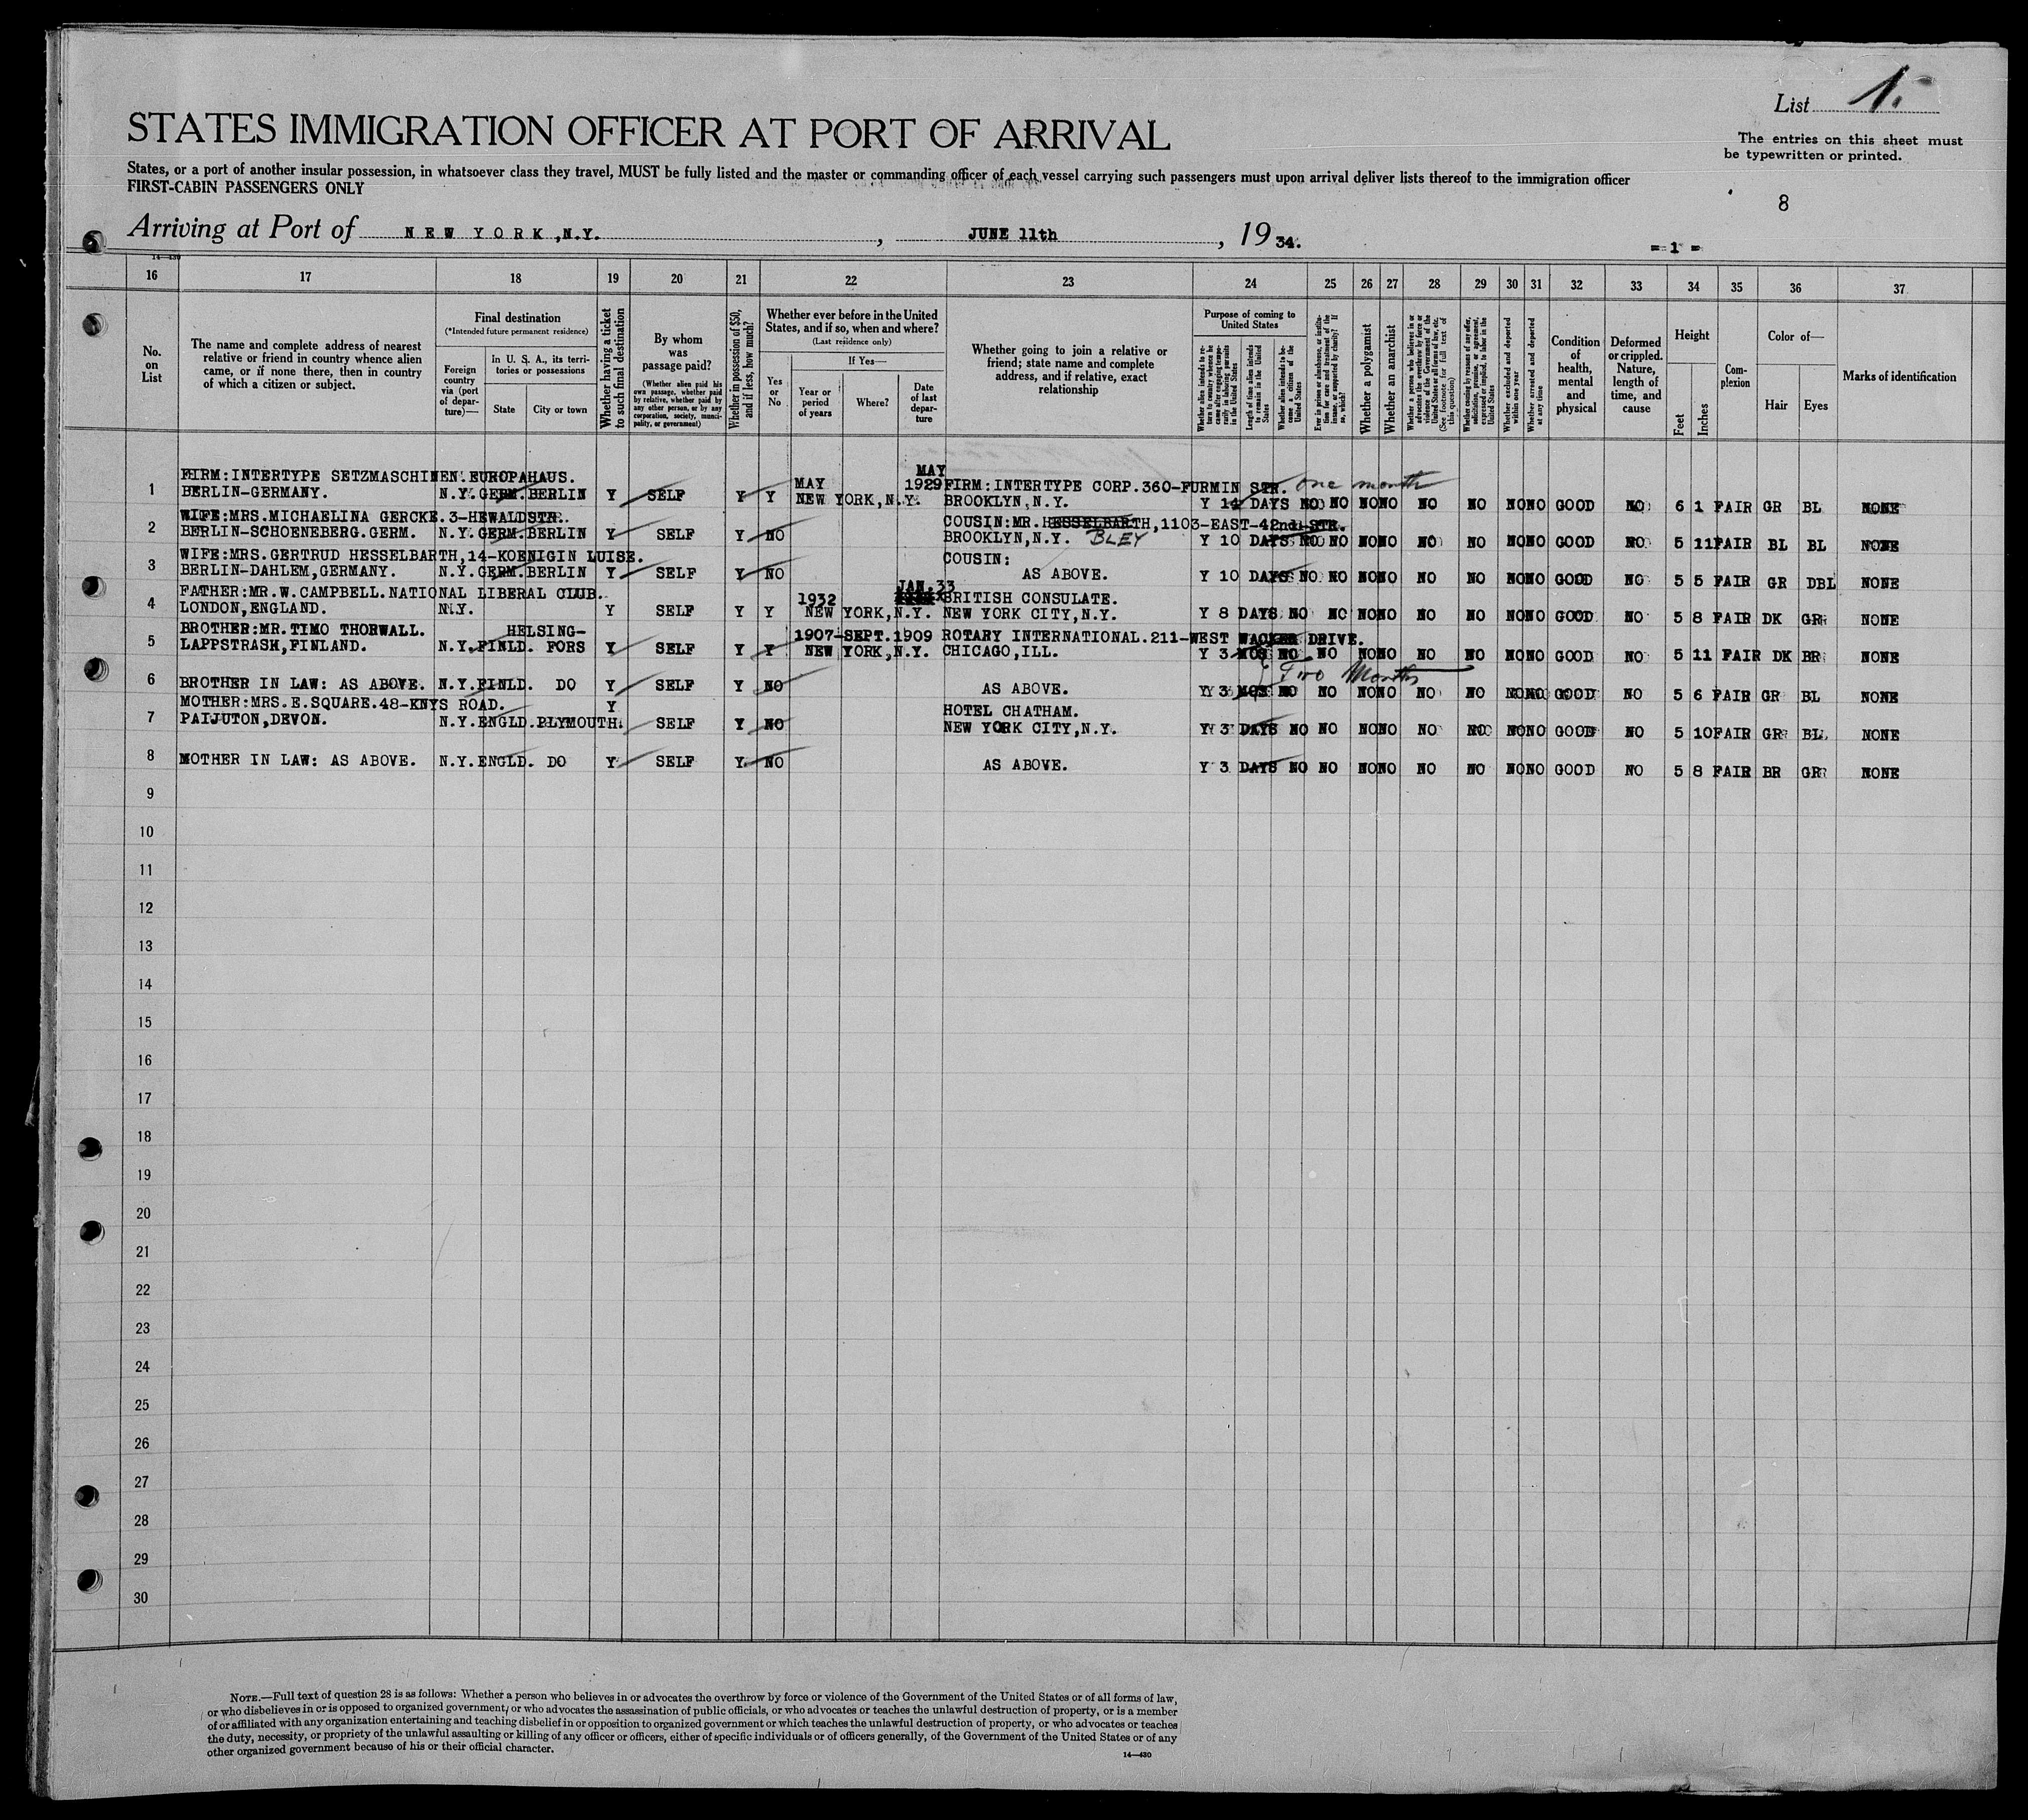 List 1.
STATES IMMIGRATION OFFICER AT PORT OF ARRIVAL
The entries on this sheet must
be typewritten or printed.
States, or a port of another insular possession, in whatsoever class they travel, MUST be fully listed and the master or commanding officer of each vessel carrying such passengers must upon arrival deliver lists thereof to the immigration officer
FIRST-CABIN PASSENGERS ONLY
8
Arriving at Port of NEW YORK, N.Y. , JUNE 11th , 19 34.
= 1 =
14—430
16 17 18 19 20 21 22 23 24 25 26 27 28 29 30 31 32 33 34 35 36 37
No. on List
The name and complete address of nearest relative or friend in country whence alien came, or if none there, then in country of which a citizen or subject.
Final destination
(*Intended future permanent residence)
Foreign country via (port of departure)—
In U. S. A., its territories or possessions
State
City or town
Whether having a ticket to such final destination
By whom was passage paid?
(Whether alien paid his own passage, whether paid by relative, whether paid by any other person, or by any corporation, society, municipality, or government)
Whether in possession of $50, and if less, how much?
Whether ever before in the United States, and if so, when and where?
(Last residence only)
Yes or No
If Yes—
Year or period of years
Where?
Date of last departure
Whether going to join a relative or friend; state name and complete address, and if relative, exact relationship
Purpose of coming to United States
Whether alien intends to return to country whence he came after engaging temporarily in laboring pursuits in the United States
Length of time alien intends to remain in the United States
Whether alien intends to become a citizen of the United States
Ever in prison or almshouse, or institution for care and treatment of the insane, or supported by charity? If so, which?
Whether a polygamist
Whether an anarchist
Whether a person who believes in or advocates the overthrow by force or violence of the Government of the United States or all forms of law, etc. (See footnote for full text of this question)
Whether coming by reasons of any offer, solicitation, promise, or agreement, expressed or implied, to labor in the United States
Whether excluded and deported within one year
Whether arrested and deported at any time
Condition of health, mental and physical
Deformed or crippled. Nature, length of time, and cause
Height
Feet
Inches
Complexion
Color of—
Hair
Eyes
Marks of identification
MAY
FIRM:INTERTYPE SETZMASCHINEN.EUROPAHAUS. MAY 1929 FIRM:INTERTYPE CORP.360-FURMIN STR. one month
1 BERLIN-GERMANY. N.Y. GERM. BERLIN Y SELF Y Y NEW YORK,N.Y. BROOKLYN,N.Y. Y 14 DAYS NO NO NO NO NO NO NO NO GOOD NO 6 1 FAIR GR BL NONE
WIFE:MRS.MICHAELINA GERCKE.3-HEWALDSTR. COUSIN:MR.HESSELBARTH,1103-EAST-42nd-STR.
2 BERLIN-SCHOENEBERG.GERM. N.Y. GERM. BERLIN Y SELF Y NO BROOKLYN,N.Y. BLEY Y 10 DAYS NO NO NO NO NO NO NO NO GOOD NO 5 11 FAIR BL BL NONE
WIFE:MRS.GERTRUD HESSELBARTH,14-KOENIGIN LUISE. COUSIN:
3 BERLIN-DAHLEM,GERMANY. N.Y. GERM. BERLIN Y SELF Y NO AS ABOVE. Y 10 DAYS NO NO NO NO NO NO NO NO GOOD NO 5 5 FAIR GR DBL NONE
FATHER:MR.W.CAMPBELL.NATIONAL LIBERAL CLUB. 1932 JAN.33 BRITISH CONSULATE.
4 LONDON,ENGLAND. N.Y. Y SELF Y Y NEW YORK,N.Y. NEW YORK CITY,N.Y. Y 8 DAYS NO NO NO NO NO NO NO NO GOOD NO 5 8 FAIR DK GR NONE
BROTHER:MR.TIMO THORWALL. HELSING- 1907-SEPT.1909 ROTARY INTERNATIONAL.211-WEST WACKER DRIVE.
5 LAPPSTRASH,FINLAND. N.Y. FINLD. FORS Y SELF Y Y NEW YORK,N.Y. CHICAGO,ILL. Y 3 MOS NO NO NO NO NO NO NO NO GOOD NO 5 11 FAIR DK BR NONE
Two Months
6 BROTHER IN LAW: AS ABOVE. N.Y. FINLD. DO Y SELF Y NO AS ABOVE. Y 3 MOS NO NO NO NO NO NO NO NO GOOD NO 5 6 FAIR GR BL NONE
MOTHER:MRS.E.SQUARE.48-KNYS ROAD. Y HOTEL CHATHAM.
7 PAIJUTON,DEVON. N.Y. ENGLD. PLYMOUTH. SELF Y NO NEW YORK CITY,N.Y. Y 3 DAYS NO NO NO NO NO NO NO NO GOOD NO 5 10 FAIR GR BL NONE
8 MOTHER IN LAW: AS ABOVE. N.Y. ENGLD. DO Y SELF Y NO AS ABOVE. Y 3 DAYS NO NO NO NO NO NO NO NO GOOD NO 5 8 FAIR BR GR NONE
9
10
11
12
13
14
15
16
17
18
19
20
21
22
23
24
25
26
27
28
29
30
NOTE.—Full text of question 28 is as follows: Whether a person who believes in or advocates the overthrow by force or violence of the Government of the United States or of all forms of law,
or who disbelieves in or is opposed to organized government, or who advocates the assassination of public officials, or who advocates or teaches the unlawful destruction of property, or is a member
of or affiliated with any organization entertaining and teaching disbelief in or opposition to organized government or which teaches the unlawful destruction of property, or who advocates or teaches
the duty, necessity, or propriety of the unlawful assaulting or killing of any officer or officers, either of specific individuals or of officers generally, of the Government of the United States or of any
other organized government because of his or their official character.
14—430